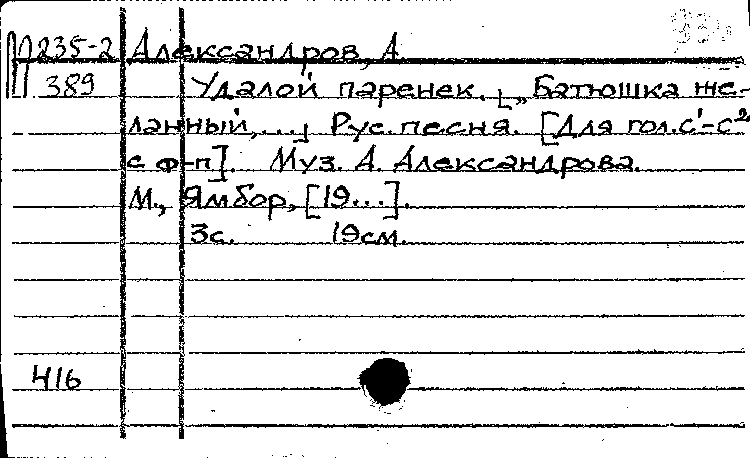 П 235-2 Александров, А.
389 Удалой паренек. [„Батюшка же-
ланный,...] Рус. песня. [Для гол. с¹-с²
с ф-п]. Муз. А. Александрова.
М., Ямбор, [19...].
3с. 19см.
416